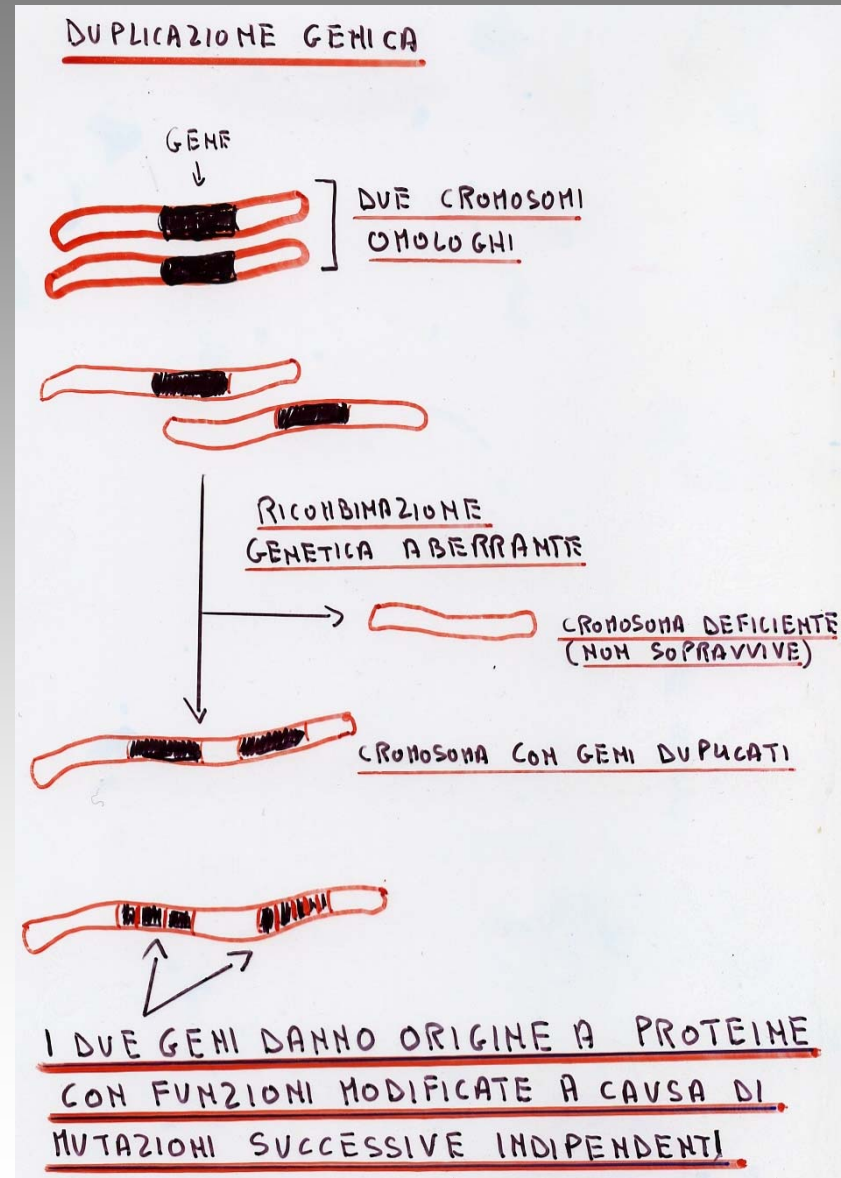 DUPLICAZIONE GENICA
GENE
DUE CROMOSOMI
OMOLOGHI
RICOMBINAZIONE
GENETICA ABERRANTE
CROMOSOMA DEFICIENTE
(NON SOPRAVVIVE)
CROMOSOMA CON GENI DUPLICATI
I DUE GENI DANNO ORIGINE A PROTEINE
CON FUNZIONI MODIFICATE A CAUSA DI
MUTAZIONI SUCCESSIVE INDIPENDENTI